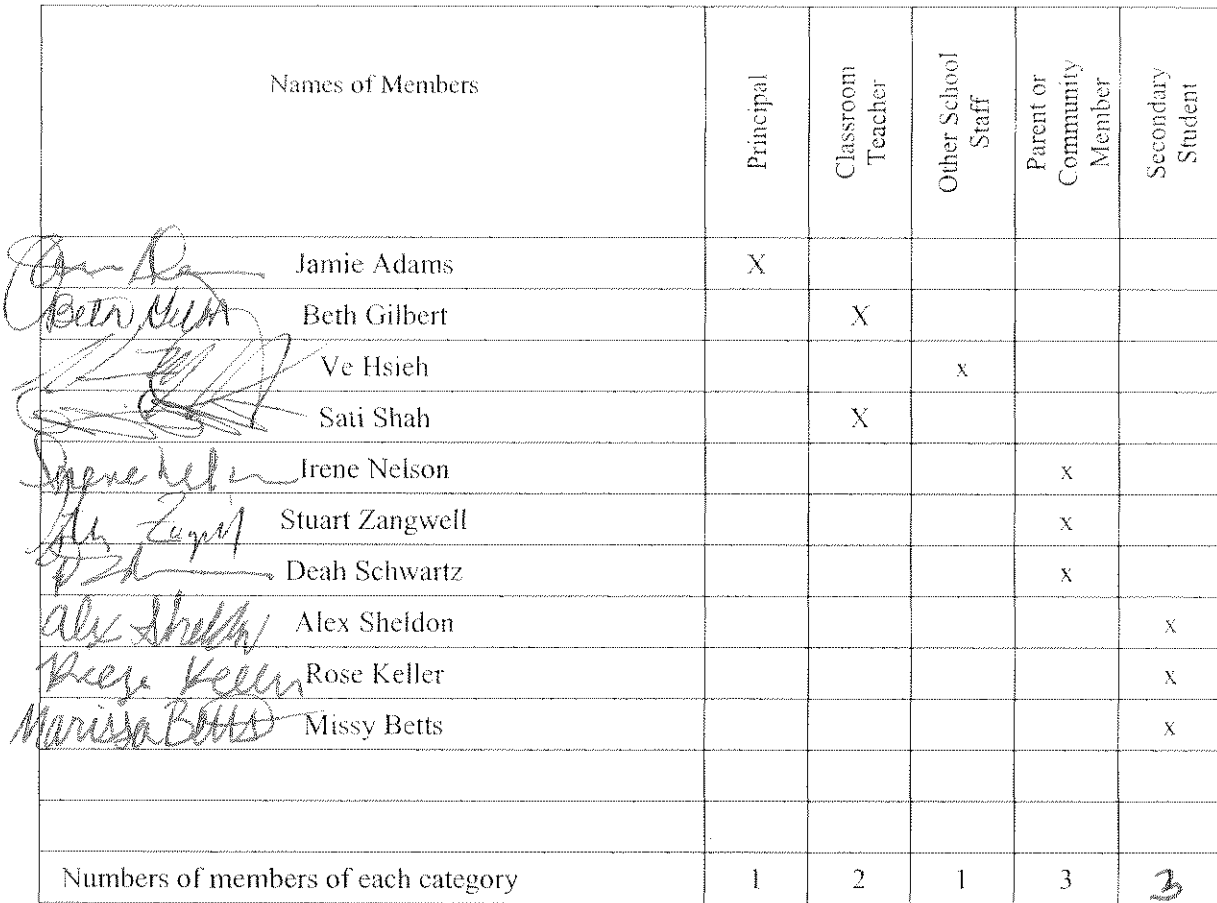 Names of Members
Principal
Classroom Teacher
Other School Staff
Parent or Community Member
Secondary Student
Jamie Adams X
Beth Gilbert X
Ve Hsieh x
Sati Shah X
Irene Nelson x
Stuart Zangwell x
Deah Schwartz x
alex Sheldon Alex Sheldon x
Keller Rose Keller x
Marissa Betts Missy Betts x
Numbers of members of each category 1 2 1 3 3